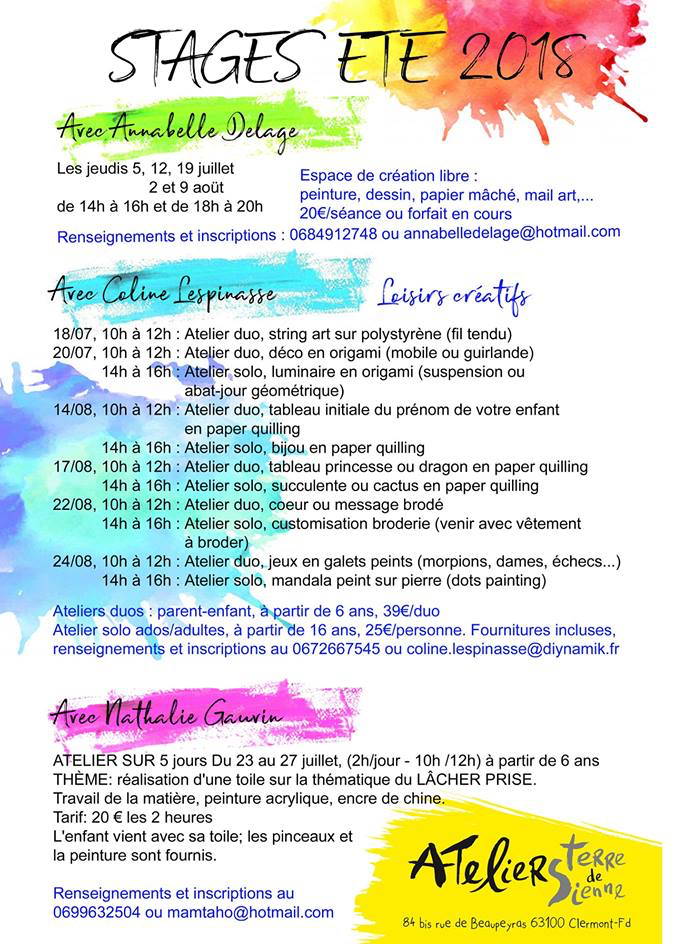 STAGES ETE 2018
Avec Annabelle Delage
Les jeudis 5, 12, 19 juillet
2 et 9 août
de 14h à 16h et de 18h à 20h
Espace de création libre :
peinture, dessin, papier mâché, mail art,...
20€/séance ou forfait en cours
Renseignements et inscriptions : 0684912748 ou annabelledelage@hotmail.com
Avec Coline Lespinasse
Loisirs créatifs
18/07, 10h à 12h : Atelier duo, string art sur polystyrène (fil tendu)
20/07, 10h à 12h : Atelier duo, déco en origami (mobile ou guirlande)
14h à 16h : Atelier solo, luminaire en origami (suspension ou
abat-jour géométrique)
14/08, 10h à 12h : Atelier duo, tableau initiale du prénom de votre enfant
en paper quilling
14h à 16h : Atelier solo, bijou en paper quilling
17/08, 10h à 12h : Atelier duo, tableau princesse ou dragon en paper quilling
14h à 16h : Atelier solo, succulente ou cactus en paper quilling
22/08, 10h à 12h : Atelier duo, coeur ou message brodé
14h à 16h : Atelier solo, customisation broderie (venir avec vêtement
à broder)
24/08, 10h à 12h : Atelier duo, jeux en galets peints (morpions, dames, échecs...)
14h à 16h : Atelier solo, mandala peint sur pierre (dots painting)
Ateliers duos : parent-enfant, à partir de 6 ans, 39€/duo
Atelier solo ados/adultes, à partir de 16 ans, 25€/personne. Fournitures incluses,
renseignements et inscriptions au 0672667545 ou coline.lespinasse@diynamik.fr
Avec Nathalie Gauvin
ATELIER SUR 5 jours Du 23 au 27 juillet, (2h/jour - 10h /12h) à partir de 6 ans
THÈME: réalisation d'une toile sur la thématique du LÂCHER PRISE.
Travail de la matière, peinture acrylique, encre de chine.
Tarif: 20 € les 2 heures
L'enfant vient avec sa toile; les pinceaux et
la peinture sont fournis.
Renseignements et inscriptions au
0699632504 ou mamtaho@hotmail.com
ATelier Sterre
de
Sienne
84 bis rue de Beaupeyras 63100 Clermont-Fd